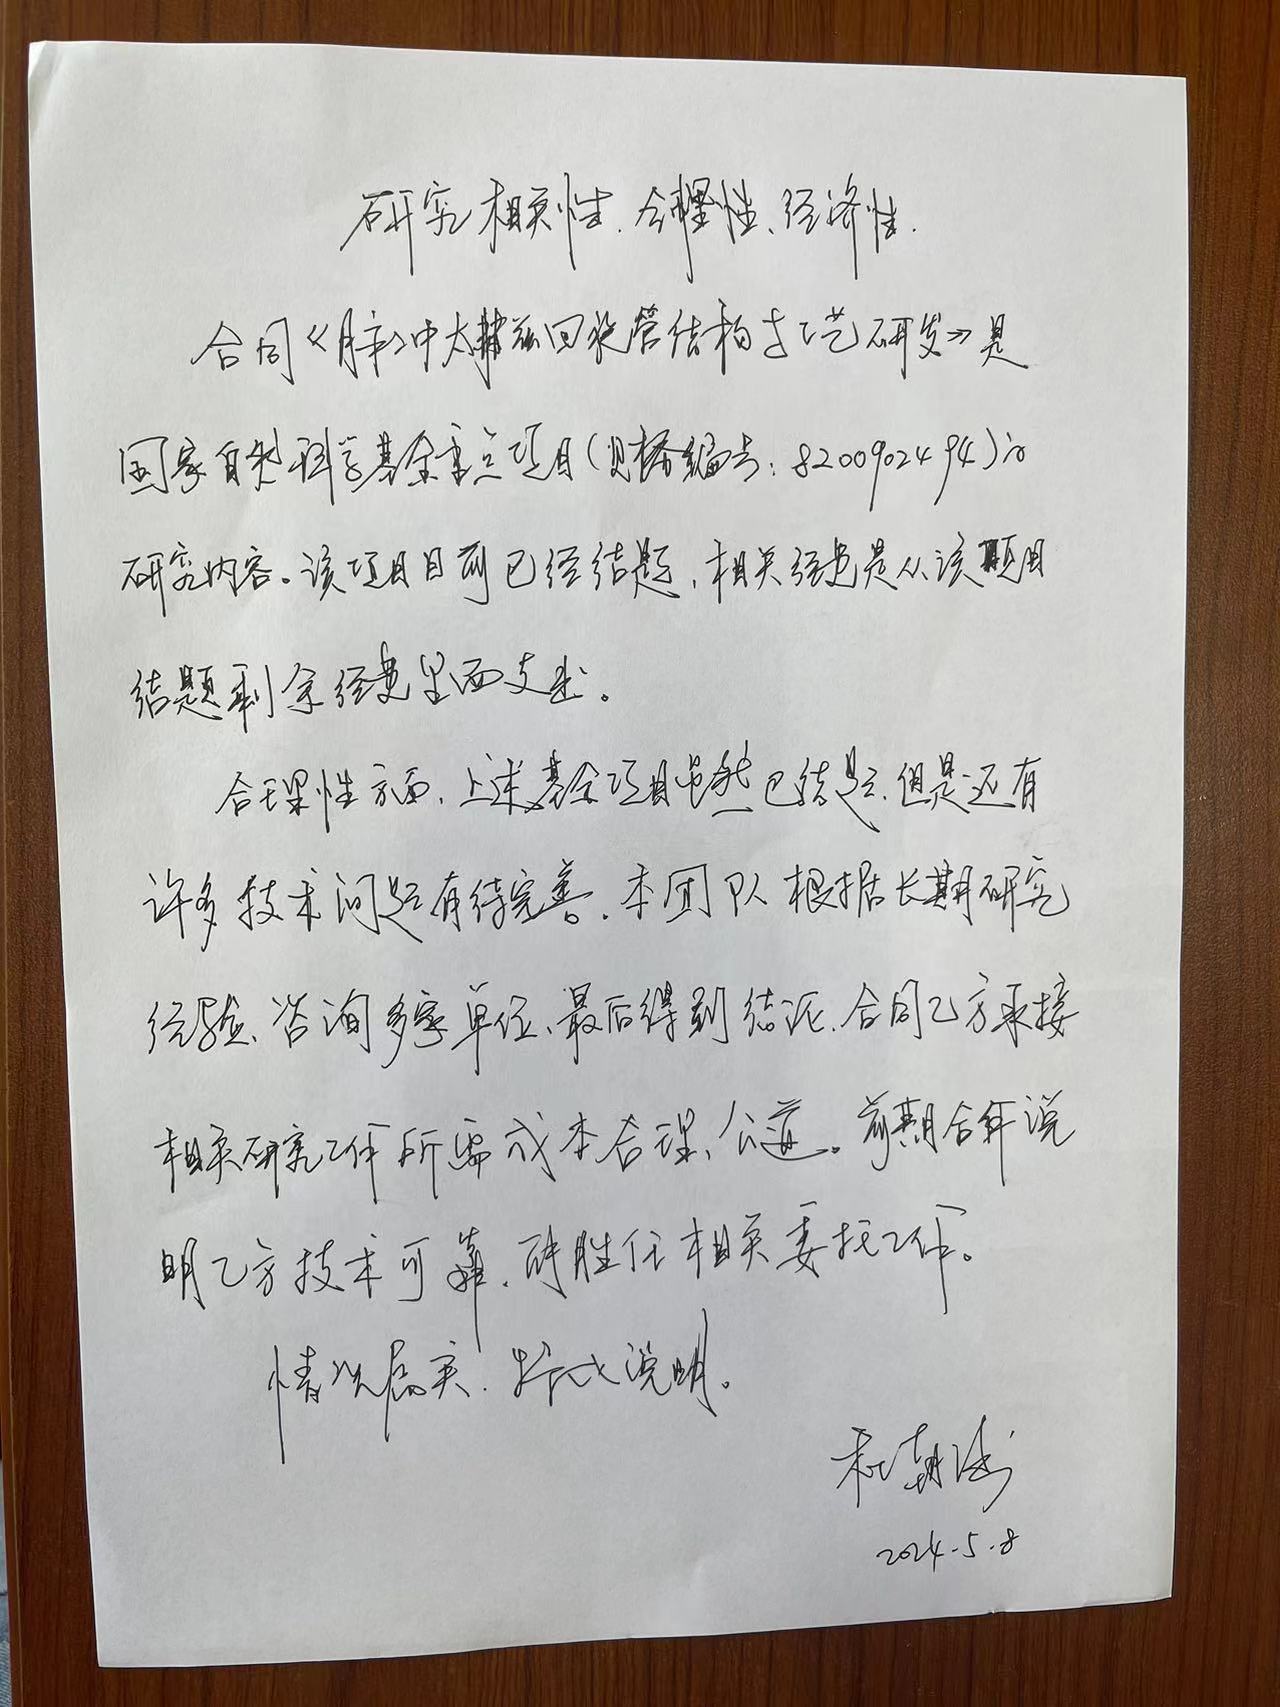 研究相关性、合理性、经济性.
合同《脉中太赫兹回旋管结构与工艺研发》是
国家自然科学基金重点项目(财务编号:8200902494)的
研究内容。该项目目前已经结题,相关经费是从该项目
结题剩余经费里面支出。
合理性方面,上述基金项目虽然已结题,但是还有
许多技术问题有待完善。本团队根据长期研究
经验、咨询多家单位、最后得到结论,合同乙方承接
相关研究工作所需成本合理、公道。前期合作说
明乙方技术可靠,能胜任相关委托工作。
情况属实,特此说明。
2024.5.8